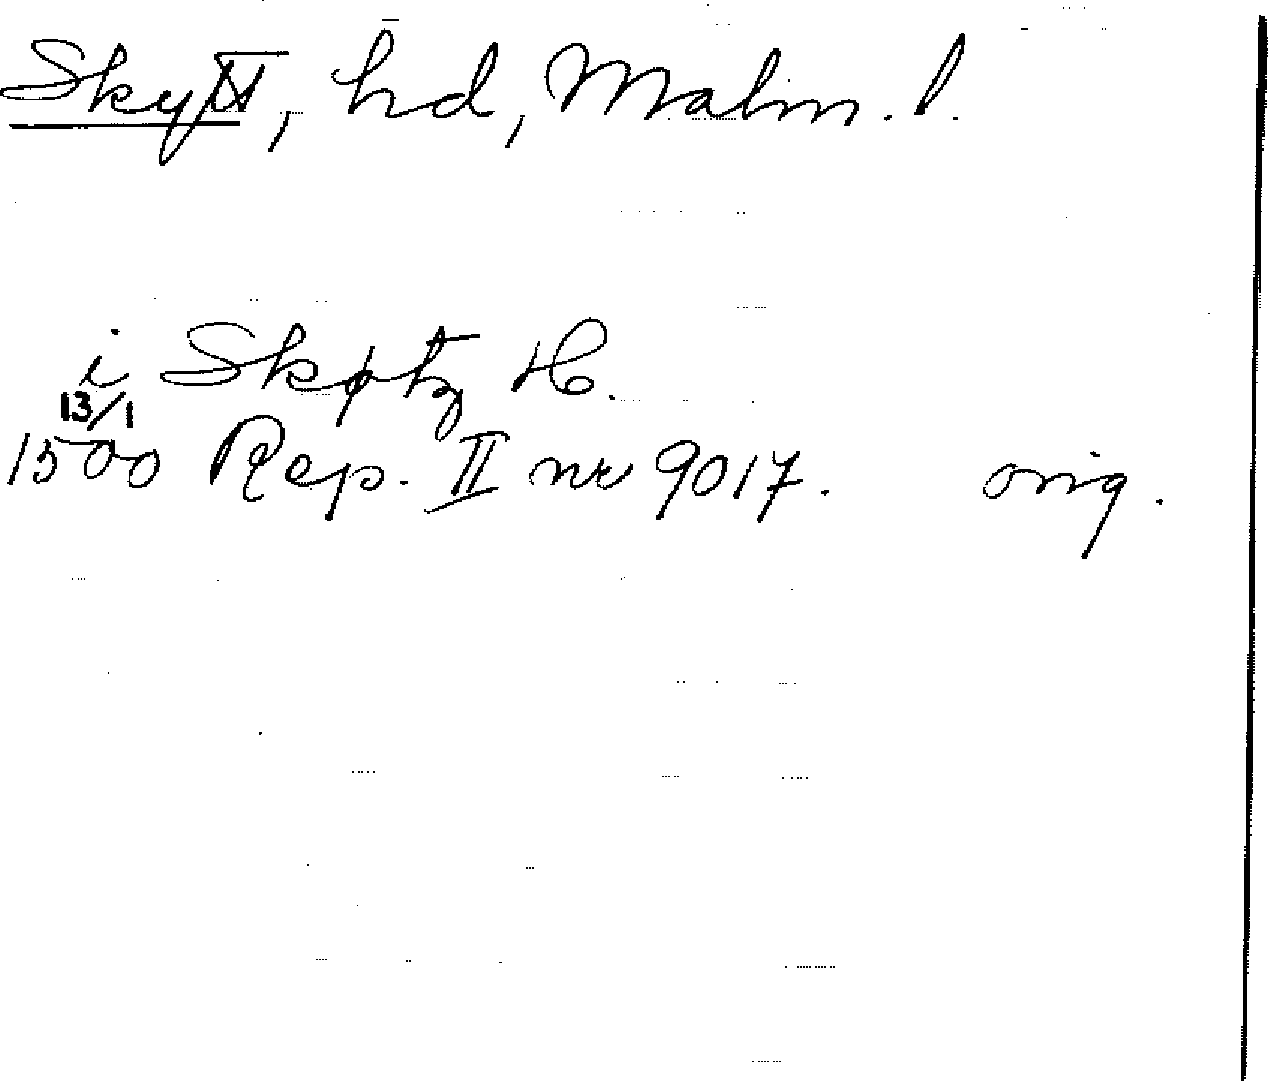 Skytt, hd, Malm. l.
i Skøtz H.
13/1
1500 Rep. II nr 9017. orig.